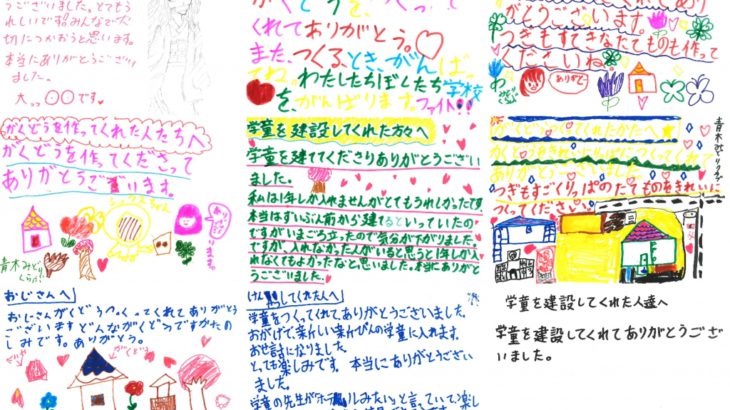 うございました。とてもう
れしいです。みんなで大
切につかおうと思います。
本当にありがとうござい
ました。
大っ〇〇です。
がくどうを作ってくれた人たちへ
がくどうを作ってくださって
ありがとうございます。
青木みどり
くらぶ
おじさんへ
おじさんがくどうつくってくれてありがとう
ございますどんながくどうですかたの
しみです。ありがとう。
がくどうを、
くれてありがとう。
また、つくるとき、がんばっ
てね。わたしたちぼしたち学校
を、がんばります。ファイト!!
学童を建設してくれた方々へ
学童を建ててくださりありがとうござい
ました。
私は1年しか入れませんがとてもうれしかったです
本当はずいぶん前から建てるといっていたの
ですがいまごろ立ったので気分が下がりました。
ですが、入れなかった人がいると思うと1年しか入
れなくてもよかったなと思いました。本当にありがと
うございました。
してくれた人へ
学童をつくってくれてありがとうございました。
おかげで、新しい新ぴんの学童に入れます。
お世話になりました。
とっても楽しみです。本当にありがとうござい
ました。
学童の先生が
いと言っていて、楽し
がとうございます。
つぎもすてきなたてものも作って
くださいね。
ありがとう
青木みどりクラブ
つぎもすごくりっぱのたてものをきれいに
つくってください。
学童を建設してくれた人達へ
学童を建設してくれてありがとうござ
いました。